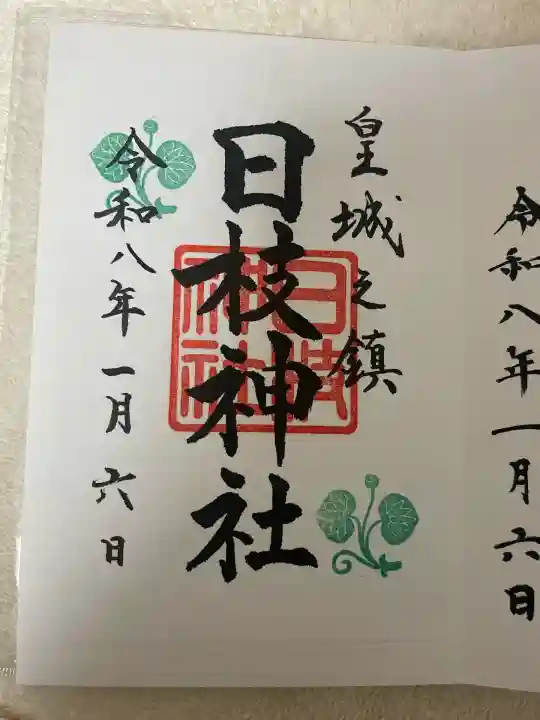 令和八年一月六日
皇城之鎮
日枝神社
日枝神社
令和八年一月六日